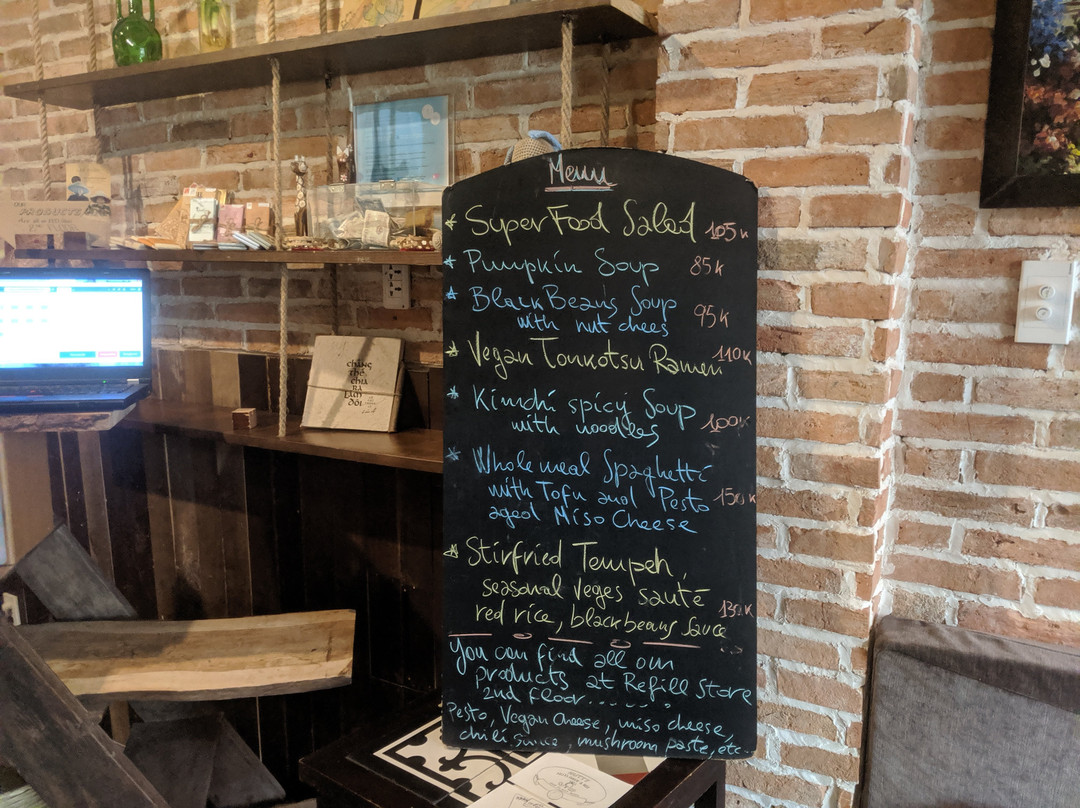 Menu
* SuperFood Salad 105k
* Pumpkin Soup 85k
* BlackBeans Soup
with nut chees 95k
* Vegan Tonkotsu Ramen 110k
* Kimchi spicy Soup
with noodles 100k
* Wholemeal Spaghetti
with Tofu and Pesto 150k
aged Miso Cheese
* Stirfried Tempeh,
seasonal veges sauté
red rice, blackbeans sauce 130k
You can find all our
products at Refill Store
2nd floor......
Pesto, Vegan Cheese, miso cheese,
chili sauce, mushroom paste, etc...
PRODUCTS
CHÀNG
THỂ
CHIA
RA
LÀM
ĐÔI